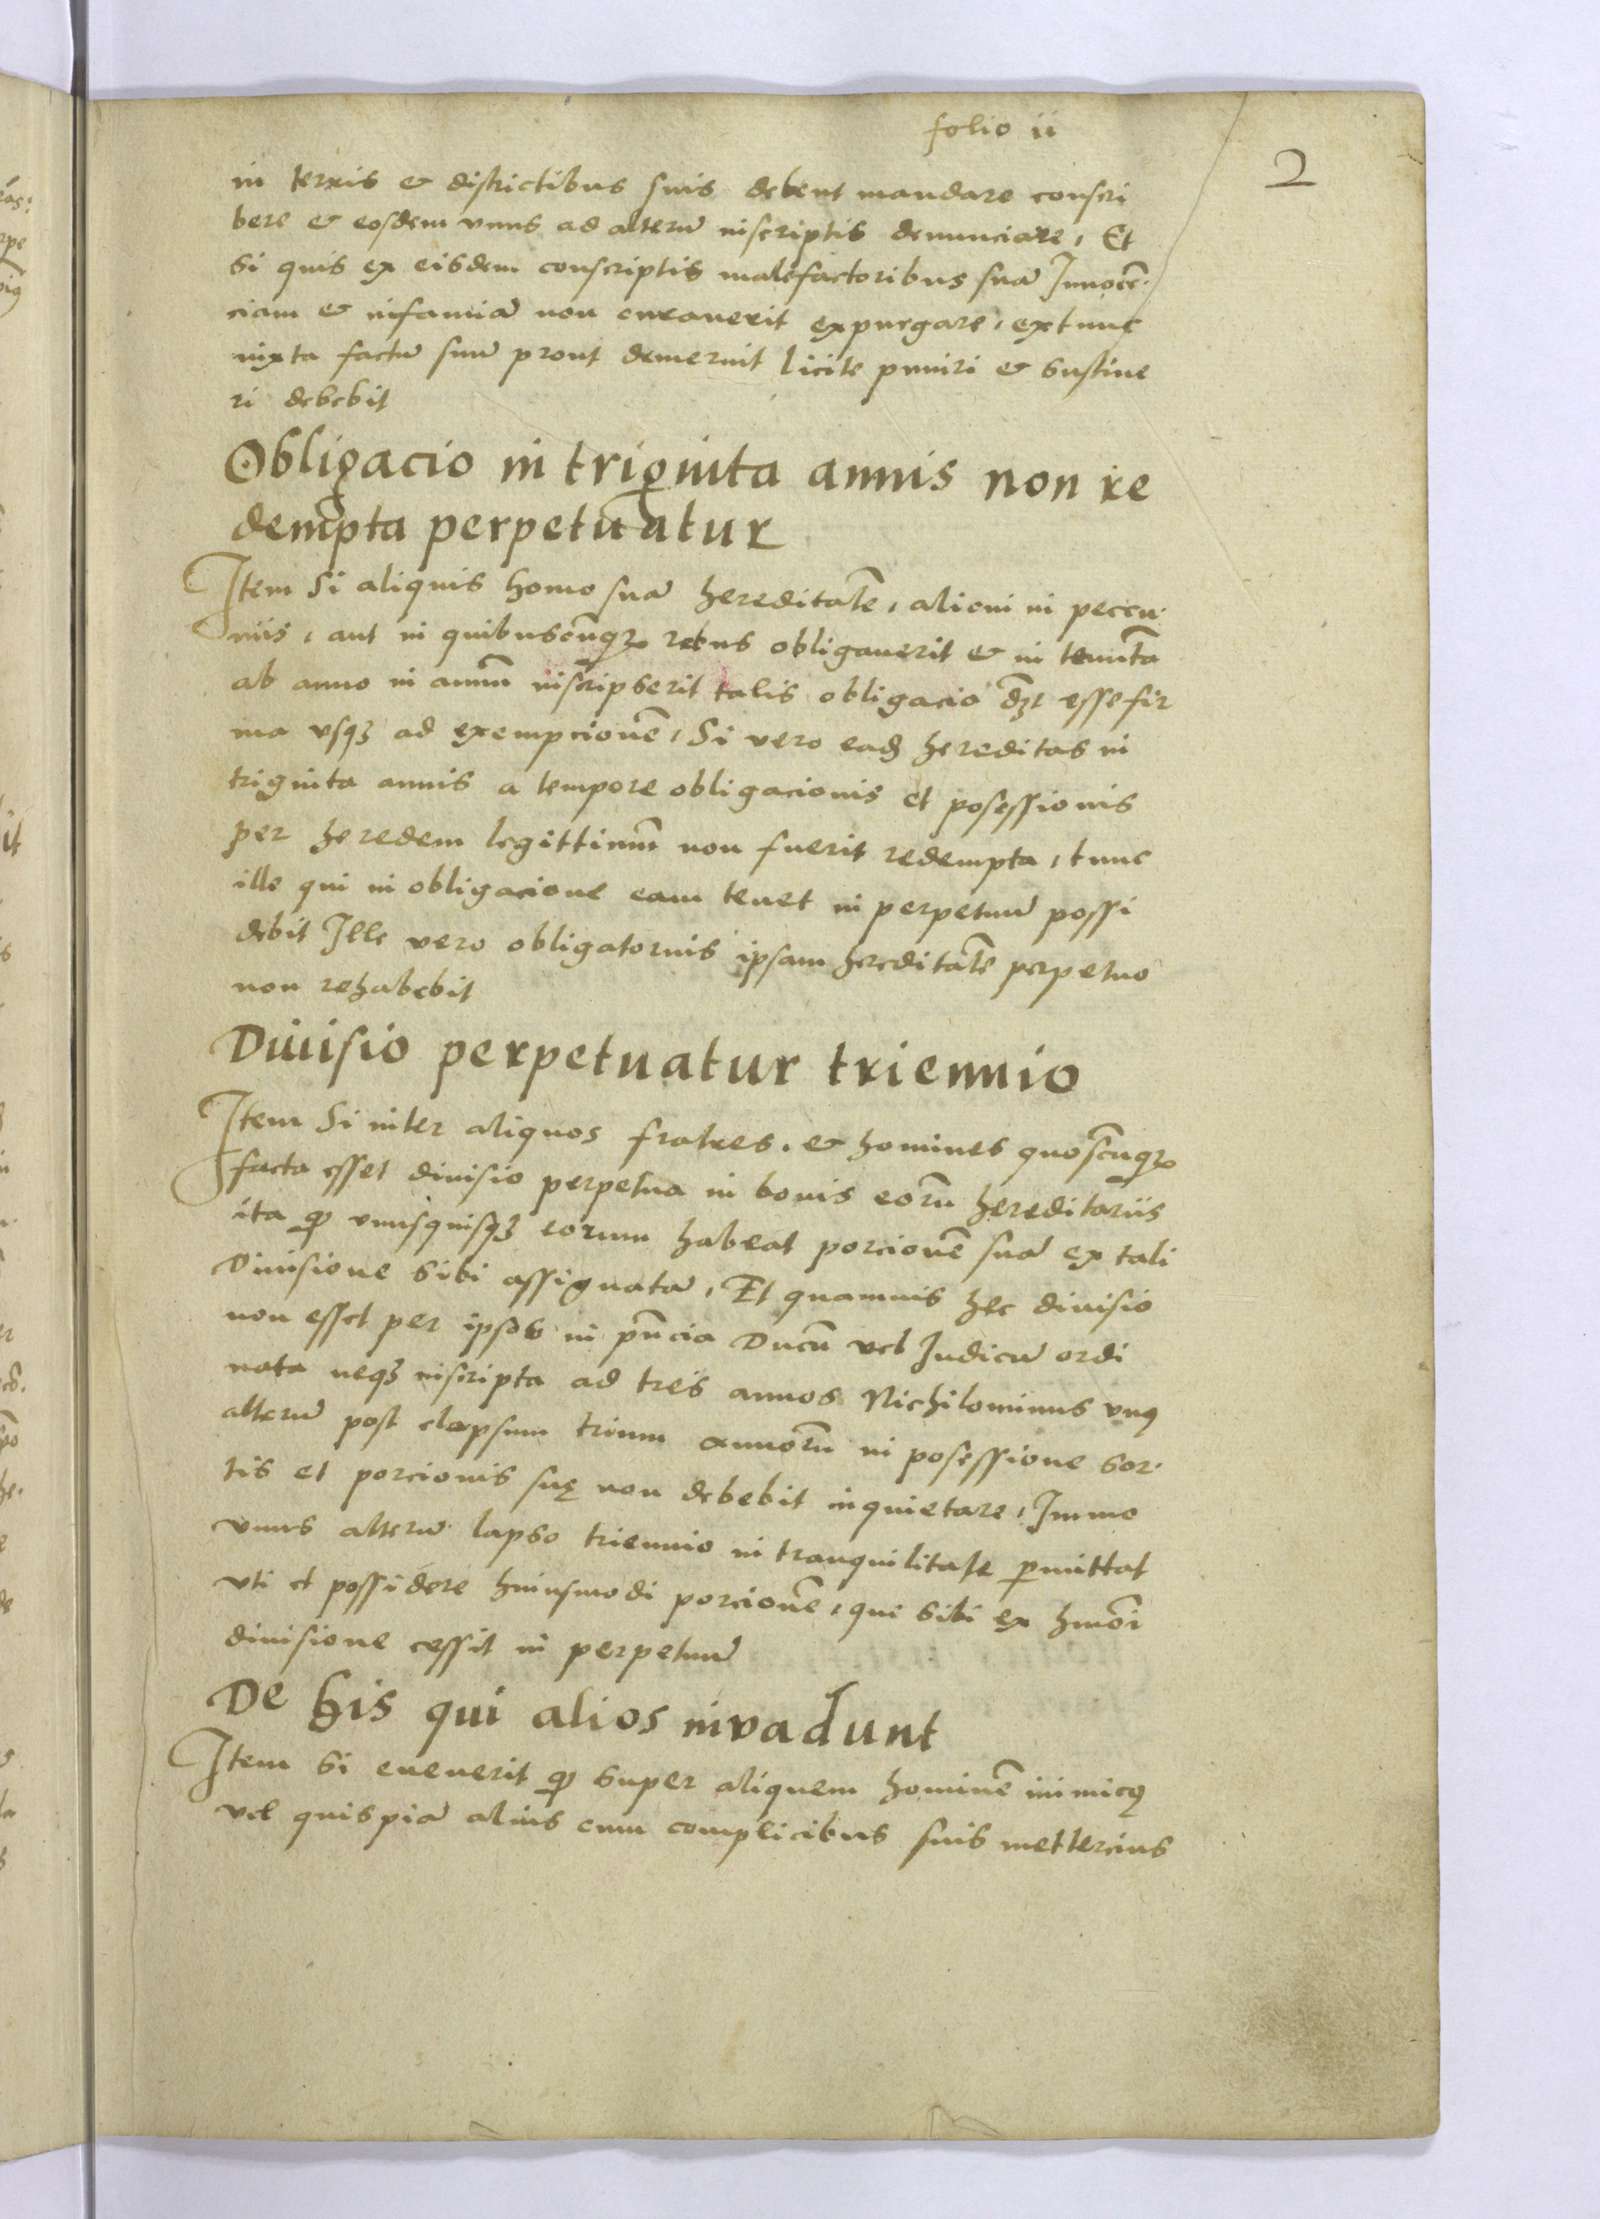 folio ii
2
in terris & districtibus suis debent mandare conscri
bere & eosdem vnus ad alterū inscriptis denunciare, Et
si quis ex eisdem conscriptis malefactoribus suā Innocē
ciam & infamiā non curauerit expurgare, extunc
iuxta factū suū prout demeruit licite puniri & sustine
ri debebit
Obligacio in triginta annis non re
dempta perpetuatur
Item Si aliquis homo suā hereditatē, alicui in peccu
niis, aut in quibuscūqȝ rebus obligauerit & in tenutā
ab anno in annū inscripserit talis obligacio dȝt esse fir
ma vsqȝ ad exempcionē, Si vero eadȝ hereditas in
triginta annis a tempore obligacionis et posessionis
per heredem legittimū non fuerit redempta, tunc
ille qui in obligacione eam tenet in perpetuū possi
debit Ille vero obligatorius ipsam hereditatē perpetuo
non rehabebit
Diuisio perpetuatur triennio
Item Si inter aliquos fratres, & homines quoscūqȝ
facta esset diuisio perpetua in bonis eorū hereditariis
ita ꝙ vnusquisqȝ eorum habeat porcionē suā ex tali
Diuisione sibi assignatā, Et quamuis hec diuisio
non esset per ipsos in pn̄cia Ducū vel Iudicū ordi
nata neqȝ inscripta ad tres annos Nichilominus vnꝯ
alterū post elapsum trium annorū in posessione sor
tis et porcionis suę non debebit inquietare, Immo
vnus alterū lapso triennio in tranquilitate ꝑmittat
vti et possidere huiusmodi porcionē, que sibi ex hmōi
diuisione cessit in perpetuū
De his qui alios inuadunt
Item si euenerit ꝙ super aliquem hominē inimicꝯ
vel quispiā alius cum complicibus suis mettercius